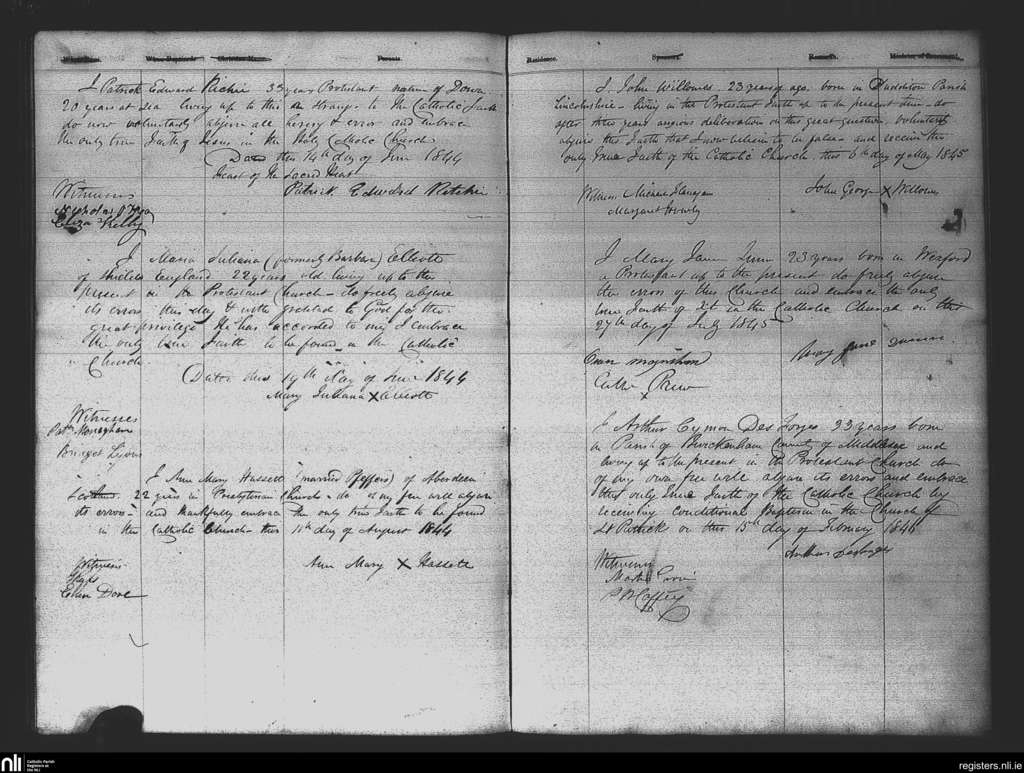 When Born.
When Baptized.
Christian Name.
Parents.
I Patrick Edward Richie 35 years Protestant native of Down
20 years at Sea living up to this a stranger to the Catholic Faith
do now voluntarily abjure all heresy & error and embrace
the only true Faith of Jesus in the Holy Catholic Church
Dated this 14th day of June 1844
Feast of the Sacred Heart
Patrick Edward Ritchie
Witnesses
Eliza Kelly
I Maria Juliana (formerly Barbara) Elliott
of England 22 years old living up to the
present in the Protestant Church - do freely abjure
its errors this day & with gratitude to God for the
great privilege He has accorded to me, I embrace
the only true Faith to be found in the Catholic
Church
Dated this 19th day of June 1844
Mary Juliana X Elliott
Witnesses
Patk Monaghan
Bridget Lyons
I Ann Mary Hassett (married Peffers) of Aberdeen
22 years in Presbyterian Church - do of my free will abjure
its errors - and thankfully embrace the only true Faith to be found
in the Catholic Church - this 11th day of August 1844
Ann Mary X Hassett
Witness
Ellen Dove
Residence.
Sponsors.
Remarks.
I. John Willows 23 years of age. born in Parish
Lincolnshire - living in the Protestant Faith up to the present time - do
after three years anxious deliberation on this great question, voluntarily
abjure the Faith that I now believe to be false - and receive the
only True Faith of the Catholic Church, this 6th day of May 1845
Witness Michael Flanagan
John George X Willows
Margaret
I Mary Jane 23 years born in Wexford
a Protestant up to the present do freely abjure
the errors of this Church and embrace the only
true Faith of Xt in the Catholic Church on this
27th day of July 1845
Mary Jane
Owen
Cathe
X
I Arthur Cymon Des Forges 23 years born
in Parish of Twickenham County of Middlesex and
living up to the present in the Protestant Church do
of my own free will abjure its errors and embrace
the only True Faith of the Catholic Church by
receiving Conditional Baptism in the Church of
St Patrick on this 15th day of February 1846
Arthur Desforges
Witnesses
nli
Catholic Parish
Registers at
the NLI
registers.nli.ie